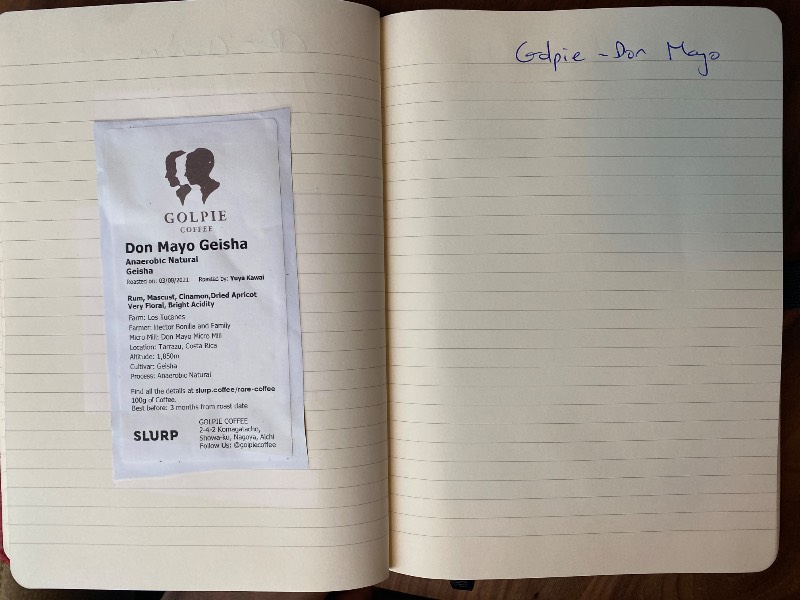 GOLPIE
COFFEE
Don Mayo Geisha
Anaerobic Natural
Geisha
Roasted on: 03/08/2021 Roasted by: Yuya Kawai
Rum, Mascust, Cinamon,Dried Apricot
Very Floral, Bright Acidity
Farm: Los Tucanes
Farmer: Hector Bonilla and Family
Micro Mill: Don Mayo Micro Mill
Location: Tarrazu, Costa Rica
Altitude: 1,850m
Cultivar: Geisha
Process: Anaerobic Natural
Find all the details at slurp.coffee/rare-coffee
100g of Coffee.
Best before: 3 months from roast date
SLURP
GOLPIE COFFEE
2-4-2 Komagatacho,
Showa-ku, Nagoya, Aichi
Follow Us: @golpiecoffee
Golpie - Don Mayo